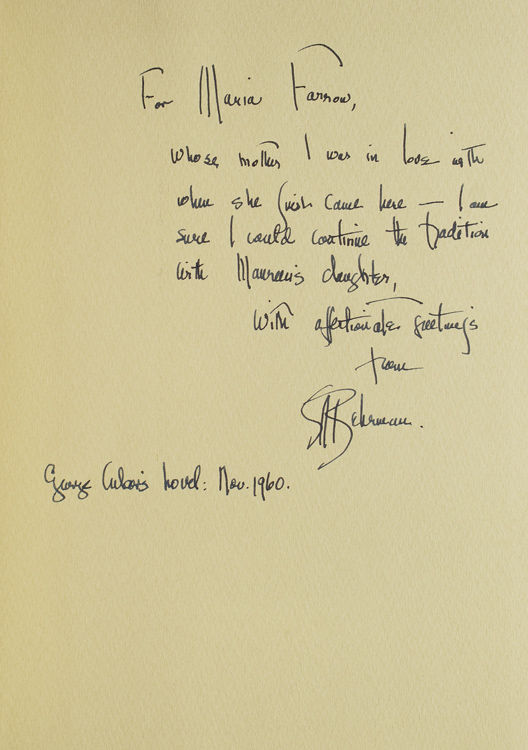 For Maria Farrow,
whose mother I was in love with
when she first came here — I am
sure I could continue the tradition
with Maureen's daughter,
With affectionate greetings
from
SNBehrman.
George Cukor's hovel: Nov. 1960.